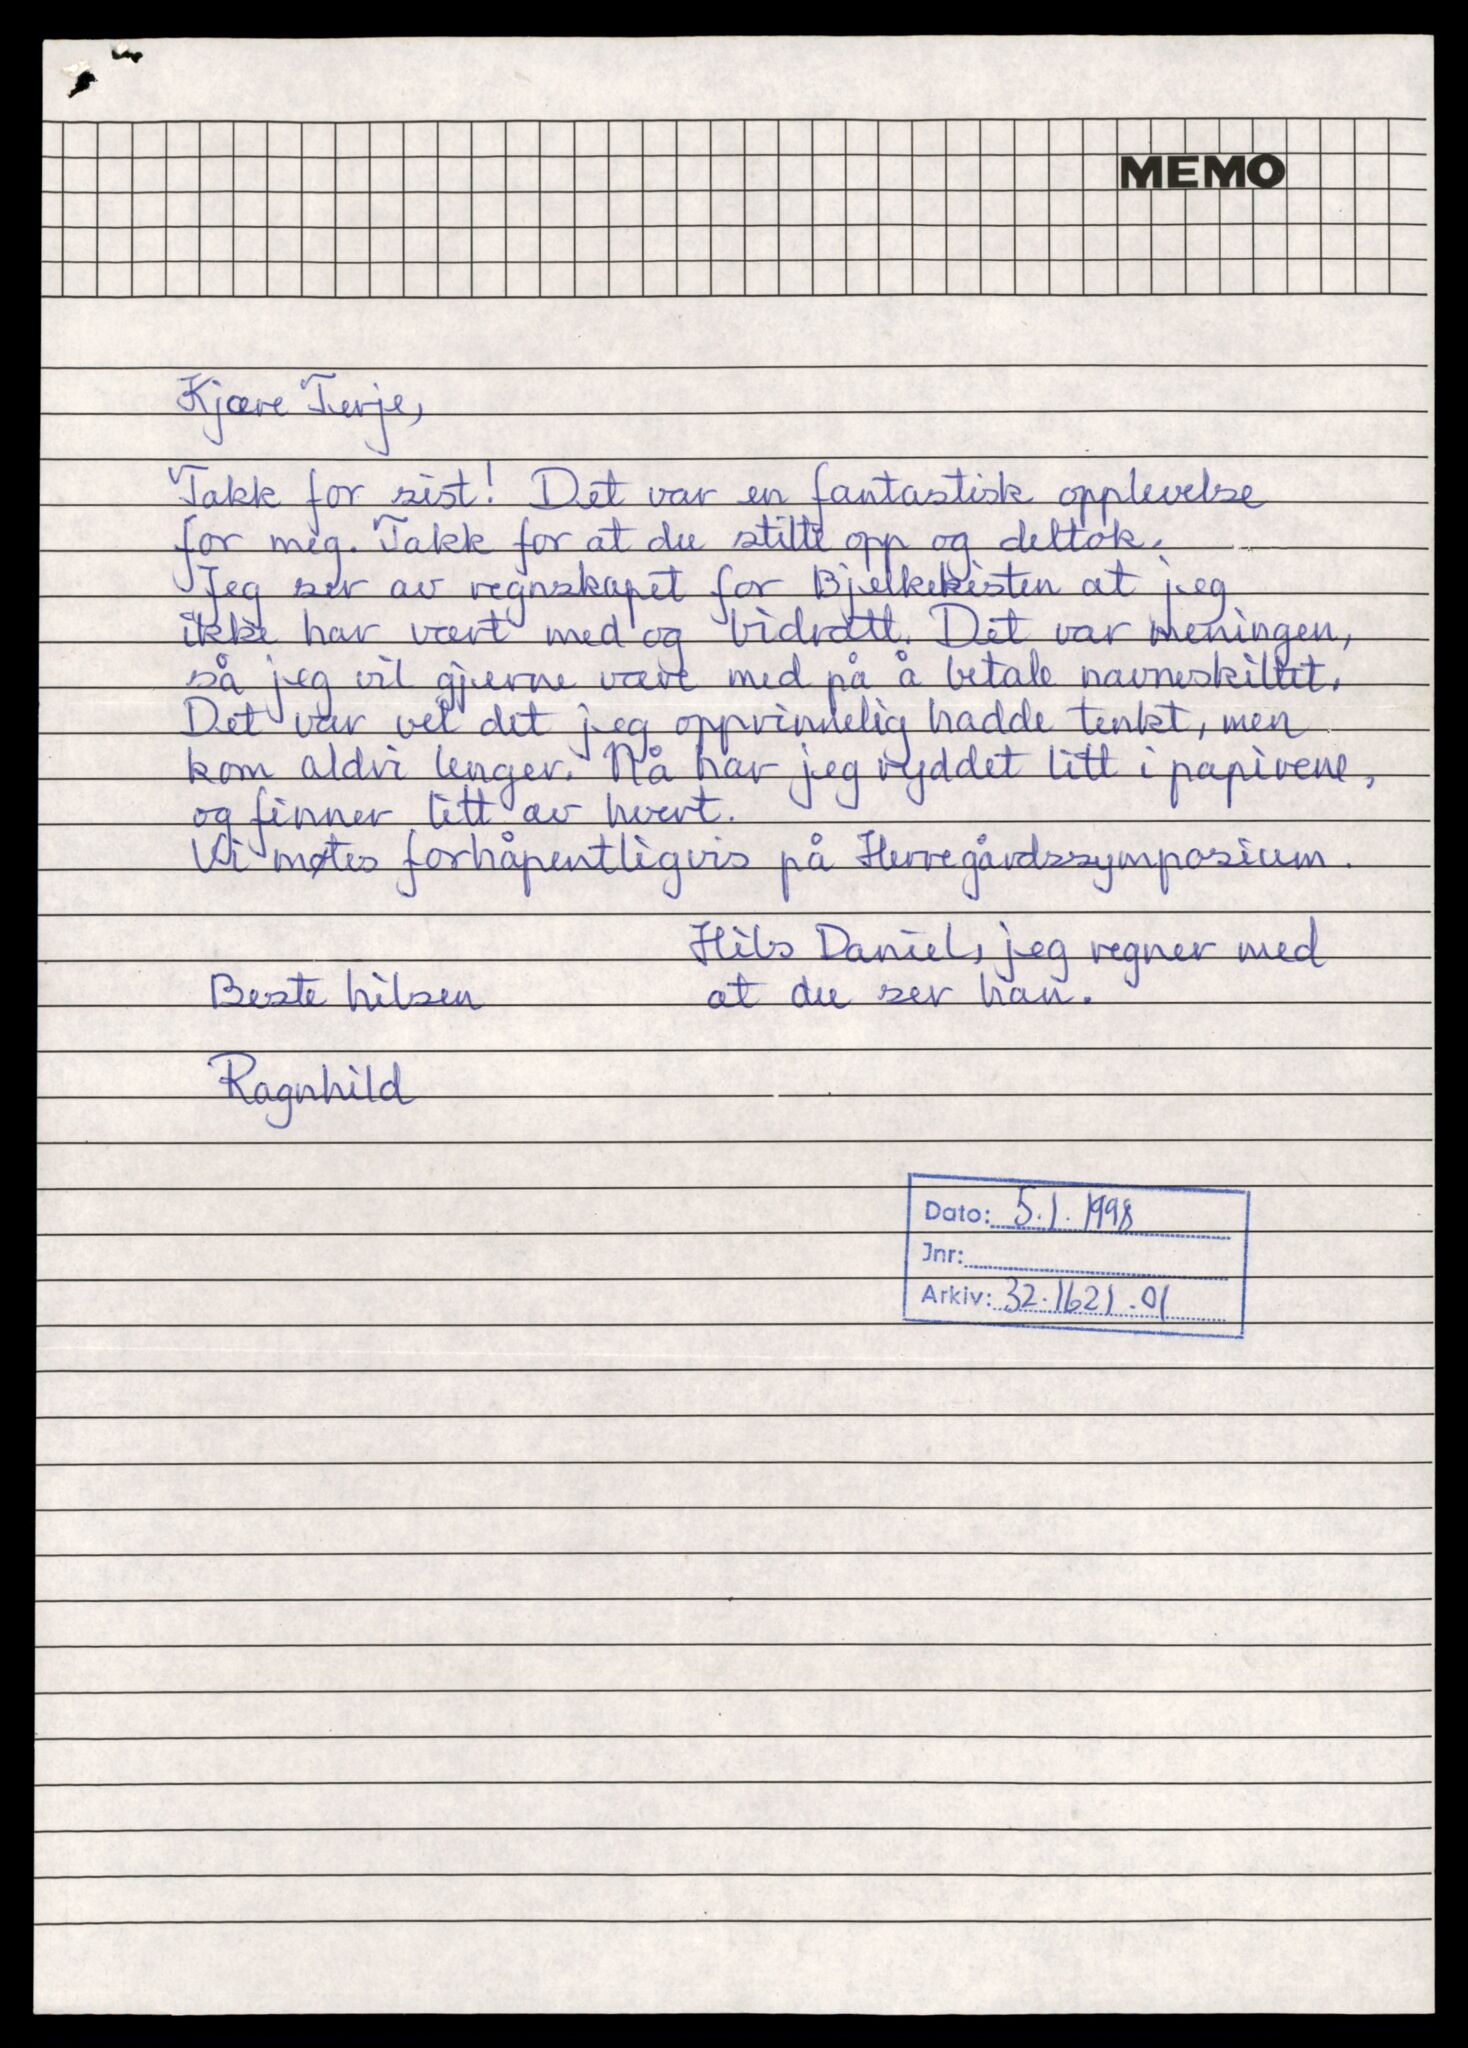 MEMO
Kjære Terje,
Takk for sist! Det var en fantastisk opplevelse
for meg. Takk for at du stilte opp og deltok.
Jeg ser av regnskapet for Bjelkekisten at jeg
ikke har vært med og bidratt. Det var meningen,
så jeg vil gjerne være med på å betale navneskiltet.
Det var vel det jeg opprinnelig hadde tenkt, men
kom aldri lenger. Nå har jeg ryddet litt i papirene,
og finner litt av hvert.
Vi møtes forhåpentligvis på Herregårdssymposium.
Hils Daniel, jeg regner med
at du ser han.
Beste hilsen
Ragnhild
Dato: 5.1.1998
Jnr:
Arkiv: 32.1621.01